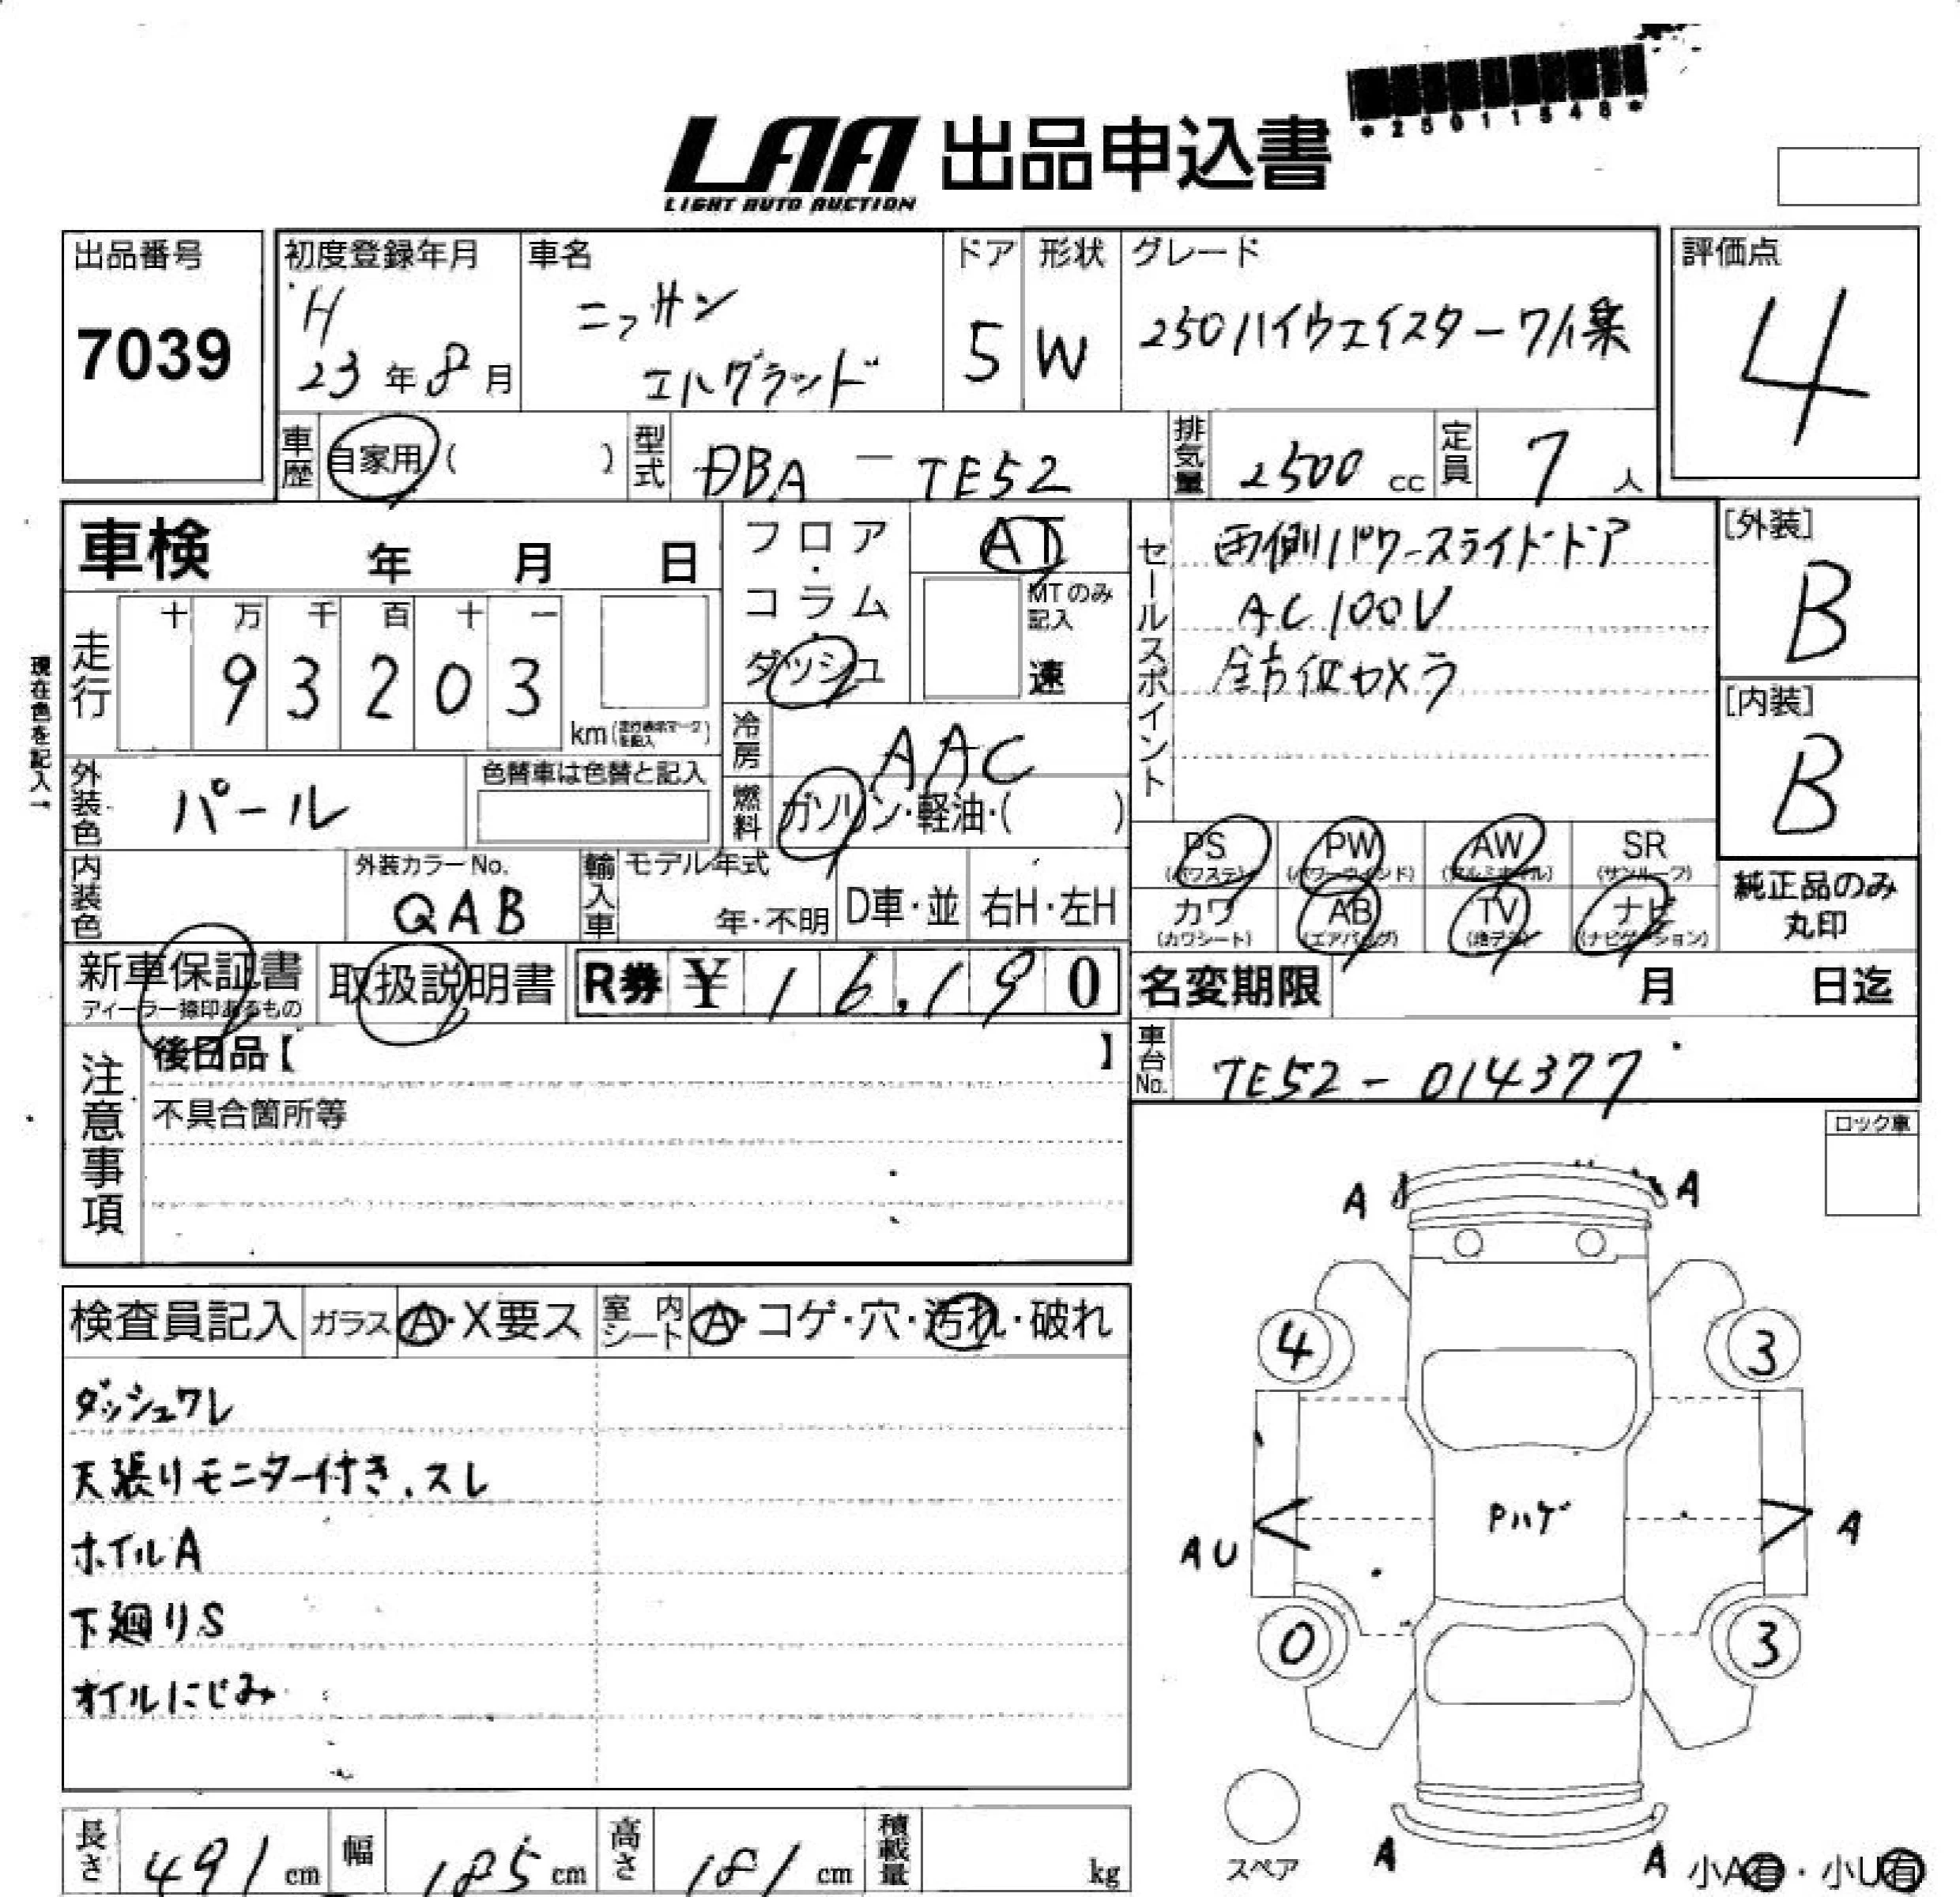 *25011548*
LAA 出品申込書
LIGHT AUTO AUCTION
出品番号
7039
初度登録年月
H
23年8月
車名
ニッサン
エルグランド
ドア
5
形状
W
グレード
250ハイウェイスター
評価点
4
車歴 自家用( )
型式 DBA-TE52
排気量 2500 cc
定員 7 人
車検 年 月 日
走行
十 万 千 百 十 一
9 3 2 0 3
km(走行表示マークを記入)
現在色を記入→
フロア・コラム・ダッシュ
AT
MTのみ記入
速
冷房 AAC
燃料 ガソリン・軽油・( )
外装色 パール
色替車は色替と記入
内装色
外装カラーNo.
QAB
輸入車
モデル年式
年・不明
D車・並
右H・左H
セールスポイント
両側パワースライドドア
AC100V
全方位カメラ
[外装]
B
[内装]
B
PS (パワステ)
PW (パワーウィンド)
AW (アルミホイル)
SR (サンルーフ)
カワ (カワシート)
AB (エアバッグ)
TV (地デジ)
ナビ (ナビゲーション)
純正品のみ
丸印
新車保証書
ディーラー捺印あるもの
取扱説明書
R券 ¥16,190
名変期限 月 日迄
車台No. TE52-014377
注意事項
後日品【 】
不具合箇所等
ロック車
検査員記入
ガラス A・X要ス
室内シート A・コゲ・穴・汚れ・破れ
ダッシュワレ
天張りモニター付き、スレ
ホイルA
下廻りS
オイルにじみ
A A
4 3
Pハゲ
AU A
0 3
スペア
A A
小A有・小U有
長さ 491 cm
幅 185 cm
高さ 181 cm
積載量 kg